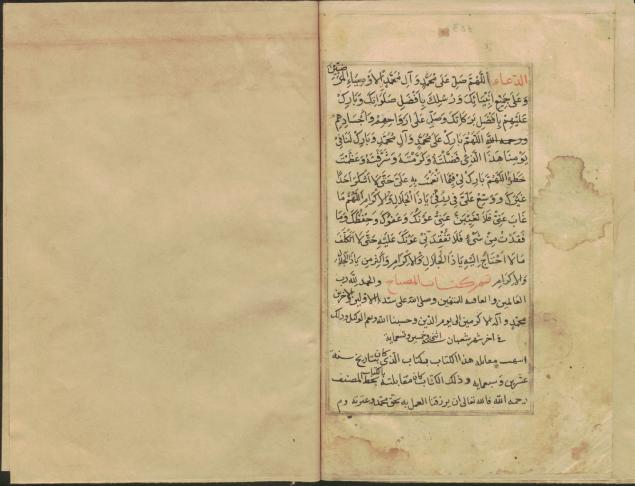 الدعاء اللهم صل على محمد وآل محمد الاوصياء المرضيين
وعلى جميع انبيائك ورسلك بافضل صلواتك وبارك
عليهم بافضل بركاتك وصل على ارواحهم واجسادهم
ورحمة الله اللهم بارك على محمد وآل محمد وبارك لنا في
يومنا هذا الذي فضلته وكرمته وشرفته وعظمت
خطره اللهم بارك لي فيما انعمت به علي حتى لا اشكر احدا
غيرك ووسع علي في رزقي ياذا الجلال والاكرام اللهم ما
غاب عني فلا تغيبن عني عونك وحفظك وما
فقدت من شيء فلا تفقدني عونك عليه حتى لا اتكلف
ما لا احتاج اليه ياذا الجلال والاكرام ياذا الجلال
والاكرام تم كتاب المصباح والحمد لله رب
العالمين والعاقبة للمتقين وصلى الله على سيد الاولين والاخرين
محمد وآله الاكرمين الى يوم الدين وحسبنا الله ونعم الوكيل وذلك
في آخر شهر شعبان وخمسين وتسعماية
انتهت مقابلة هذا الكتاب بكتاب الذي كان بتاريخ سنة
عشرين وسبعماية وذلك الكتاب كان مقابلته بخط المصنف
رحمه الله فالله تعالى ان يرزقنا العمل به بحق محمد وعترته